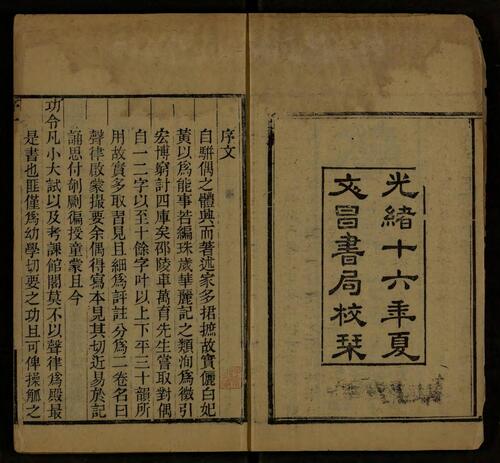 光緒十六年夏
文昌書局校栞
序文
自駢偶之體興而著述家多捃摭故實儷白妃
黃以爲能事若編珠歲華麗記之類洵爲徵引
宏博窮討四庫矣邵陵車萬育先生嘗取對偶
自一二字以至十餘字叶以上下平三十韻所
用故實多取習見且細爲評註分爲二卷名曰
聲律啟蒙撮要余偶得寫本見其切近易於記
誦思付剞劂徧授童蒙且今
功令凡小大試以及考課館閣莫不以聲律爲殿最
是書也匪僅爲幼學切要之功且可俾操觚之